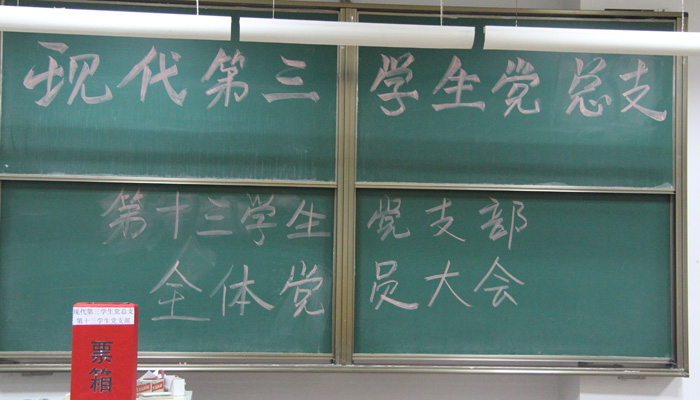 现代第三学生党总支
第十三学生党支部
全体党员大会
现代第三学生党总支
第十三学生党支部
票箱